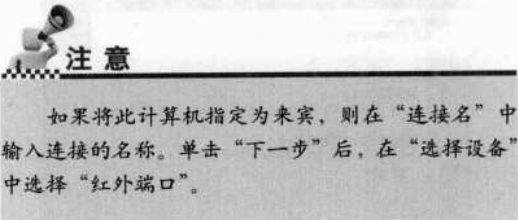 注意
如果将此计算机指定为来宾，则在“连接名”中
输入连接的名称。单击“下一步”后，在“选择设备”
中选择“红外端口”。